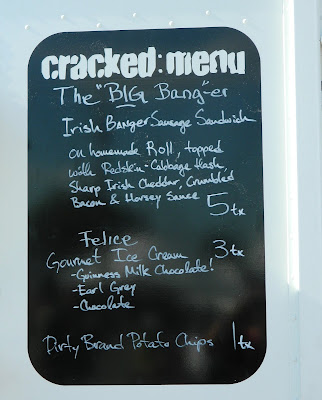 cracked:menu
The "BIG Bang"-er
Irish Banger Sausage Sandwich
on homemade Roll, topped
with Redskin-Cabbage Hash
Sharp Irish Cheddar, Crumbled
Bacon & Horsey Sauce 5tx
Felice
Gourmet Ice Cream 3tx
-Guinness Milk Chocolate!
-Earl Grey
-Chocolate
Dirty Brand Potato Chips 1tx